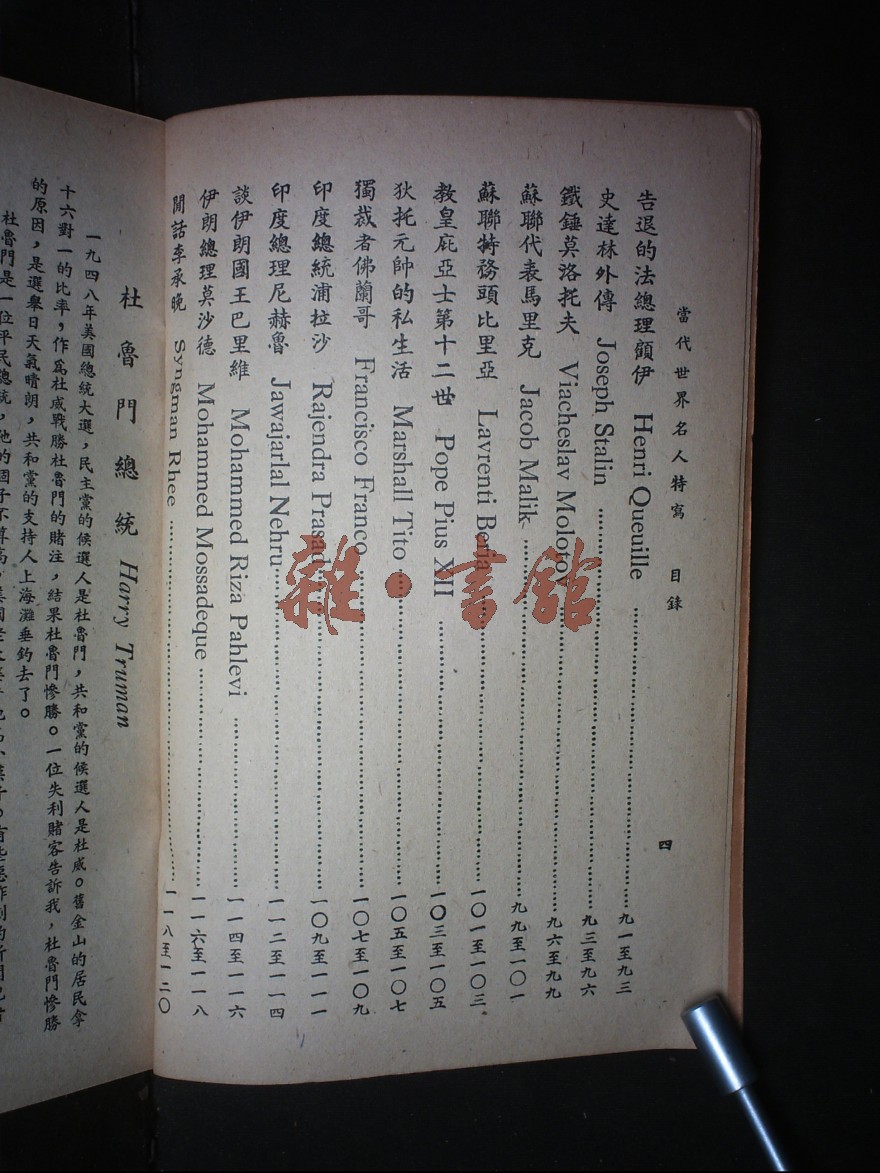 當代世界名人特寫　目錄　四
告退的法總理顧伊　Henri Queuille ……………………九一至九三
史達林外傳　Joseph Stalin ……………………九三至九六
鐵錘莫洛托夫　Viacheslav Molotov……………………九六至九九
蘇聯代表馬里克　Jacob Malik……………………九九至一〇一
蘇聯特務頭比里亞　Lavrenti Beria……………………一〇一至一〇三
教皇庇亞士第十二世　Pope Pius XII ……………………一〇三至一〇五
狄托元帥的私生活　Marshall Tito……………………一〇五至一〇七
獨裁者佛蘭哥　Francisco Franco……………………一〇七至一〇九
印度總統浦拉沙　Rajendra Prasad……………………一〇九至一一一
印度總理尼赫魯　Jawajarlal Nehru……………………一一二至一一四
談伊朗國王巴里維　Mohammed Riza Pahlevi ……………………一一四至一一六
伊朗總理莫沙德　Mohammed Mossadeque ……………………一一六至一一八
閒話李承晚　Syngman Rhee ……………………一一八至一二〇
雜·書館
杜魯門總統 Harry Truman
一九四八年美國總統大選，民主黨的候選人是杜魯門，共和黨的候選人是杜威。舊金山的居民拿
十六對一的比率，作為杜威戰勝杜魯門的賭注，結果杜魯門慘勝。一位失利賭客告訴我，杜魯門慘勝
的原因，是選舉日天氣晴朗，共和黨的支持人上海灘垂釣去了。
杜魯門是一位平民總統，他的個子不算高，